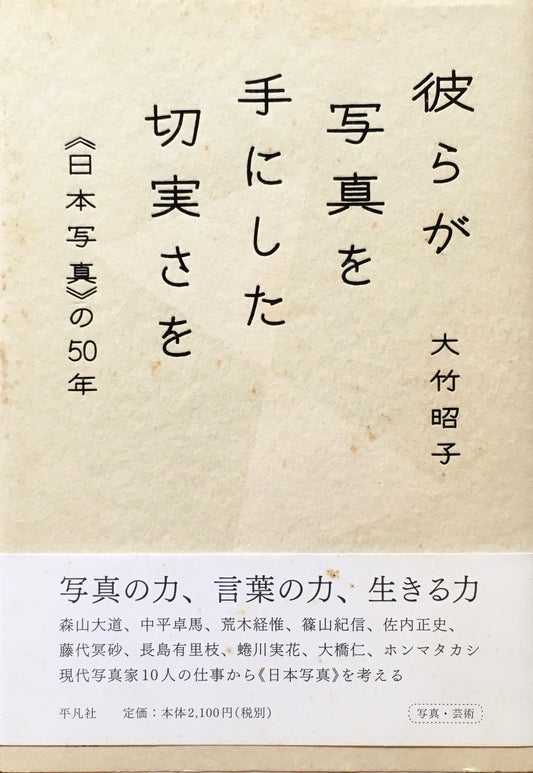 彼らが
写真を
手にした
切実さを
《日本写真》の50年
大竹昭子
写真の力、言葉の力、生きる力
森山大道、中平卓馬、荒木経惟、篠山紀信、佐内正史、
藤代冥砂、長島有里枝、蜷川実花、大橋仁、ホンマタカシ
現代写真家10人の仕事から《日本写真》を考える
平凡社 定価：本体2,100円（税別）
写真・芸術